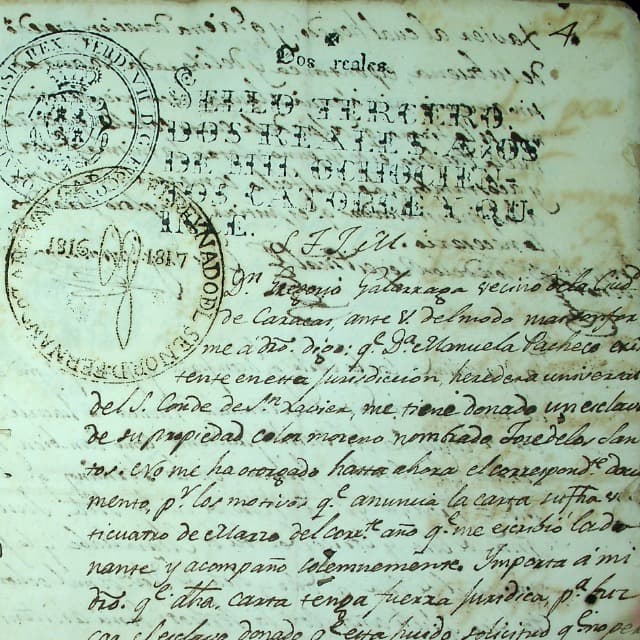 4
Dos reales.
SELLO TERCERO,
DOS REALES, AÑOS
DE MIL OCHOCIEN-
TOS CATORCE Y QU-
INCE.
1816 1817
Dn Galarraga vecino de la Ciud
de Caracas, ante V. del modo mas conform
me a dro. digo: qe Da Manuela Pacheco exis
tente en esta jurisdicion, heredera universal
del S. Conde de Sn Xavier, me tiene donado un esclavo
de su propiedad color moreno nombrado Jose de los San
tos. No me ha otorgado hasta ahora el correspondte docu
mento, pr los motivos qe anuncia la carta
ticuatro de Marzo del corrte año qe me escribió la do
nante y acompaño solemnemente. Importa á mi
dro. qe dha. carta tenga fuerza juridica, pa
el esclavo donado qe esta huido, solicitud qe no po